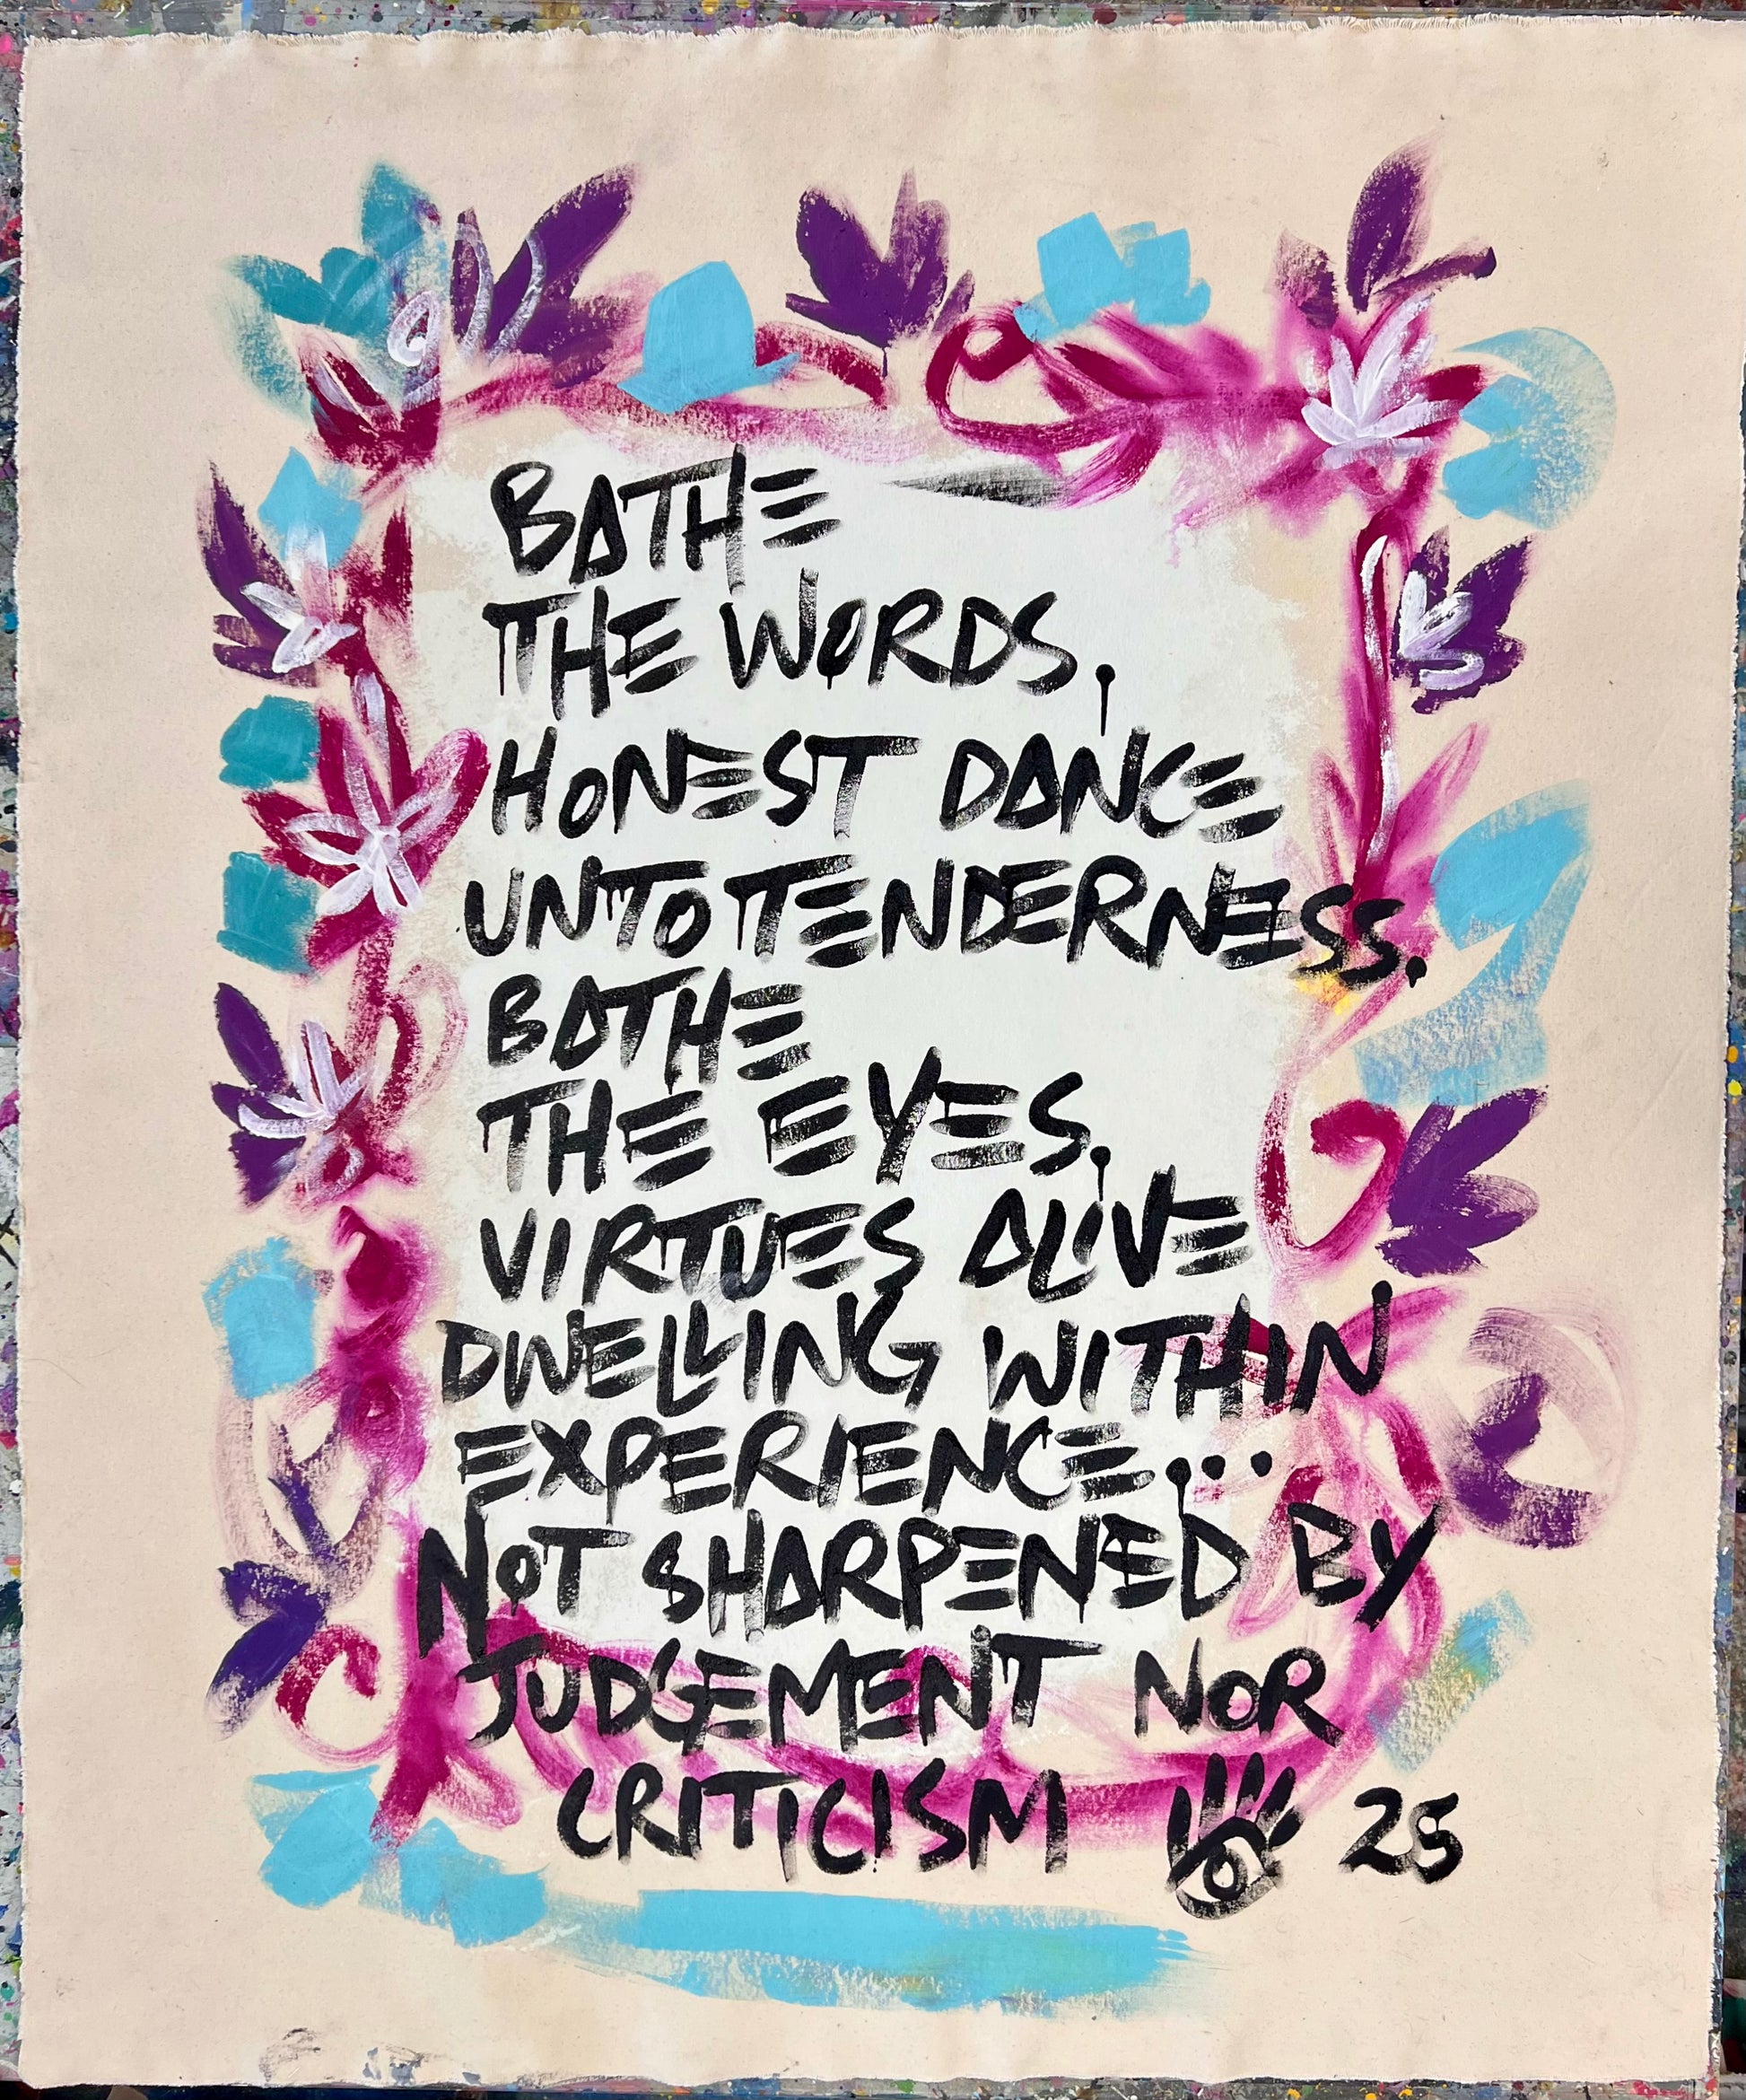 BATHE
THE WORDS,
HONEST DANCE
UNTO TENDERNESS.
BATHE
THE EYES,
VIRTUES ALIVE
DWELLING WITHIN
EXPERIENCE...
NOT SHARPENED BY
JUDGEMENT NOR
CRITICISM 25